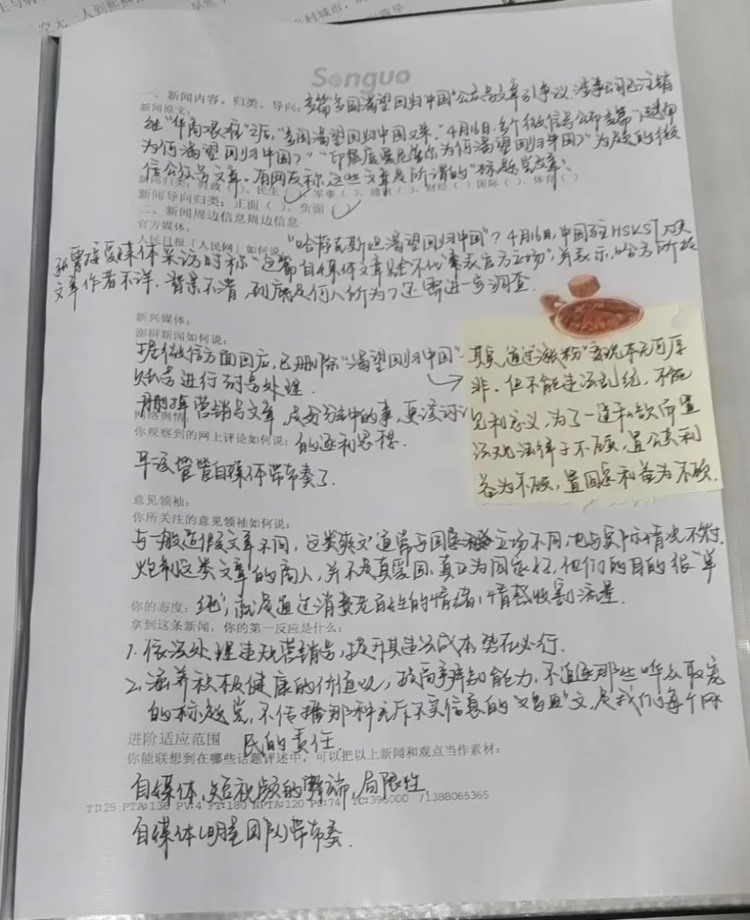 Songuo
一、新闻内容、归类、导向：多篇多国渴望回归中国"公众号文章引争议 涉事公司已注销
新闻原文：
继"华商艰难"之后，"多国渴望回归中国又来。"4月16日，多个微信号公布多篇
为何渴望回归中国？""印度曼尼普尔为何渴望回归中国？"为题的微
信公众号文章。有网友称，这些文章是所谓的"标题党文章"。
新闻归类：时政（ ）、民生（ ）、军事（ ）、通讯（ ）、财经（ ）国际（ ）、体育（ ）
新闻导向归类：正面（ ）、负面（ ）
二、新闻周边信息周边信息
官方媒体：
人民日报［人民网］如何说："哈萨克斯坦渴望回归中国"？4月16日，中国驻HSKST大使
接受媒体采访时称"这篇自媒体文章完全不代表官方立场"，并表示，哈方所指
文章作者不详，背景不清，到底是何人所为？还需进一步调查。
新兴媒体：
澎湃新闻如何说：
据微信方面回应，已删除"渴望回归中国"
账号进行封号处理。
删掉营销号文章，是分内中的事，更该讨论
网络舆情
你观察到的网上评论如何说：的逐利思想。
早该管管自媒体带节奏了。
其实，通过"涨粉"变现本无可厚
非。但不能违法乱纪，不能
见利忘义，为了一道私欲而置
法规法律于不顾，置公众利
益为不顾，置国家利益为不顾。
意见领袖：
你所关注的意见领袖如何说：
与一般造假文章不同，这类爽文通常于国家立场不同，也与实际情况不符。
炮制这类文章的商人，并不是真爱国，真正为国家好。他们的目的很"单
你的态度：纯"，就是通过消费无知的情绪，情感收割流量。
拿到这条新闻，你的第一反应是什么：
1. 依法处理违规营销号，提升其违法成本势在必行。
2. 涵养积极健康的价值观，提高辨知能力，不追逐那些哗众取宠
的标题党，不传播那种充斥不实信息的文，是我们每个网
进阶适应范围 民的责任
你能联想到在哪些话题评述中，可以把以上新闻和观点当作素材：
自媒体，短视频的弊端，局限性
TD:25 PTA:136 PV:4 PT:180 NPTA:120 PG:74 TC:396000 /1388065365
自媒体明星团队带节奏.